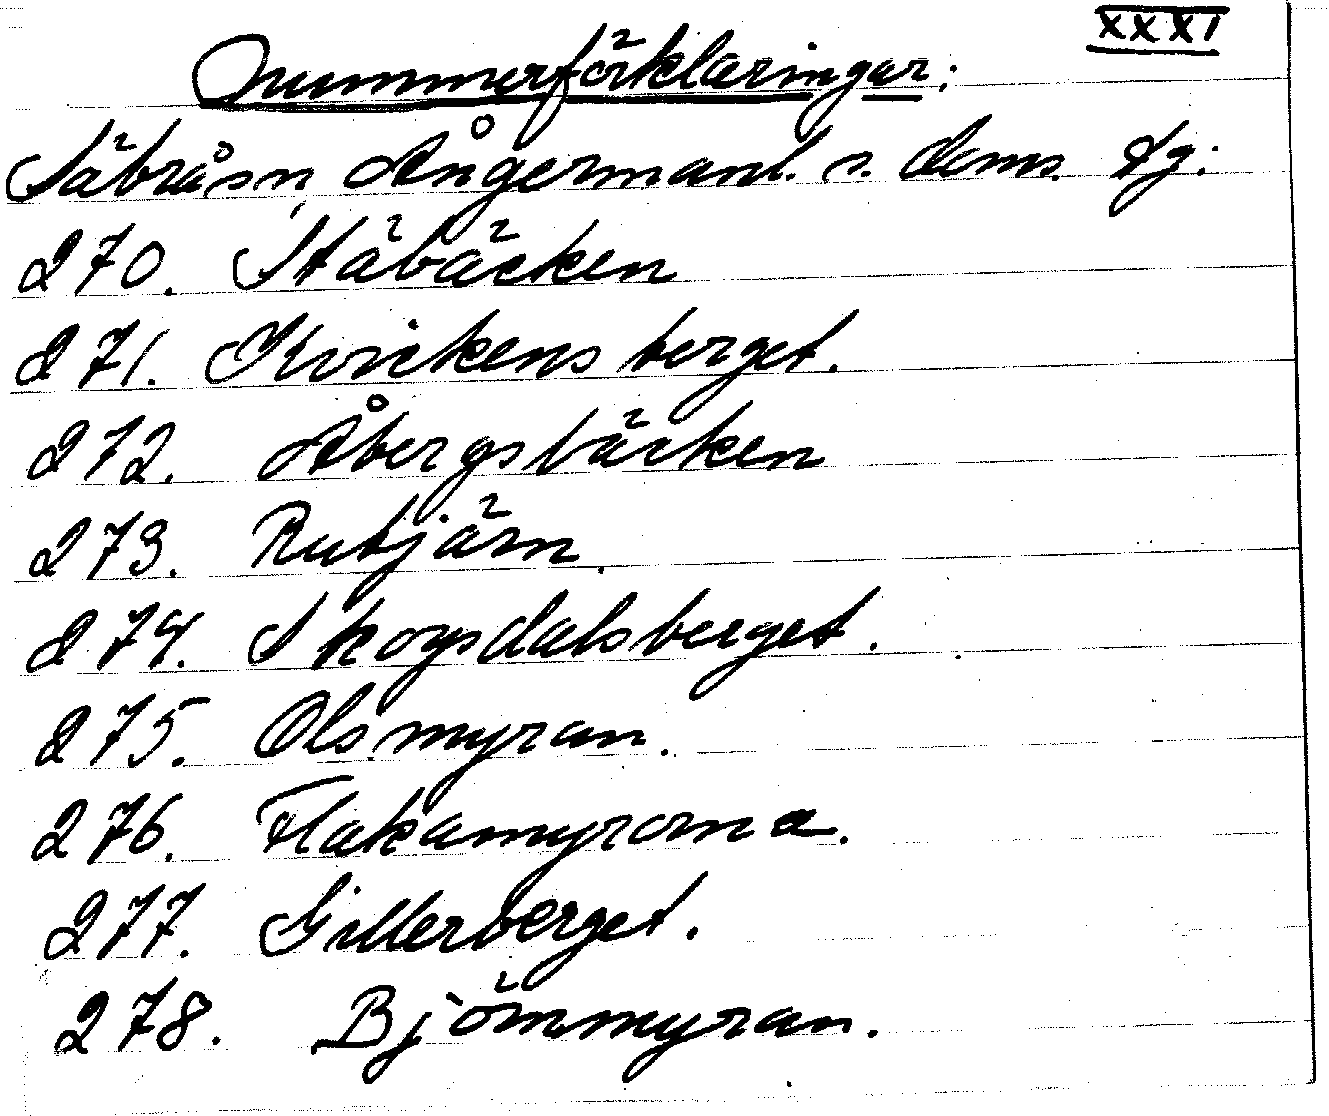 XXXI
Nummerförklaringar:
Säbrå sn Ångermanl. s. doms. tg:
270. Stäbäcken
271. Kvickensberget.
272. Åbergsbäcken
273. Rutjärn.
274. Skogsdalsberget.
275. Olsmyran.
276. Flakamyrorna.
277. Gillerberget.
278. Björnmyran.